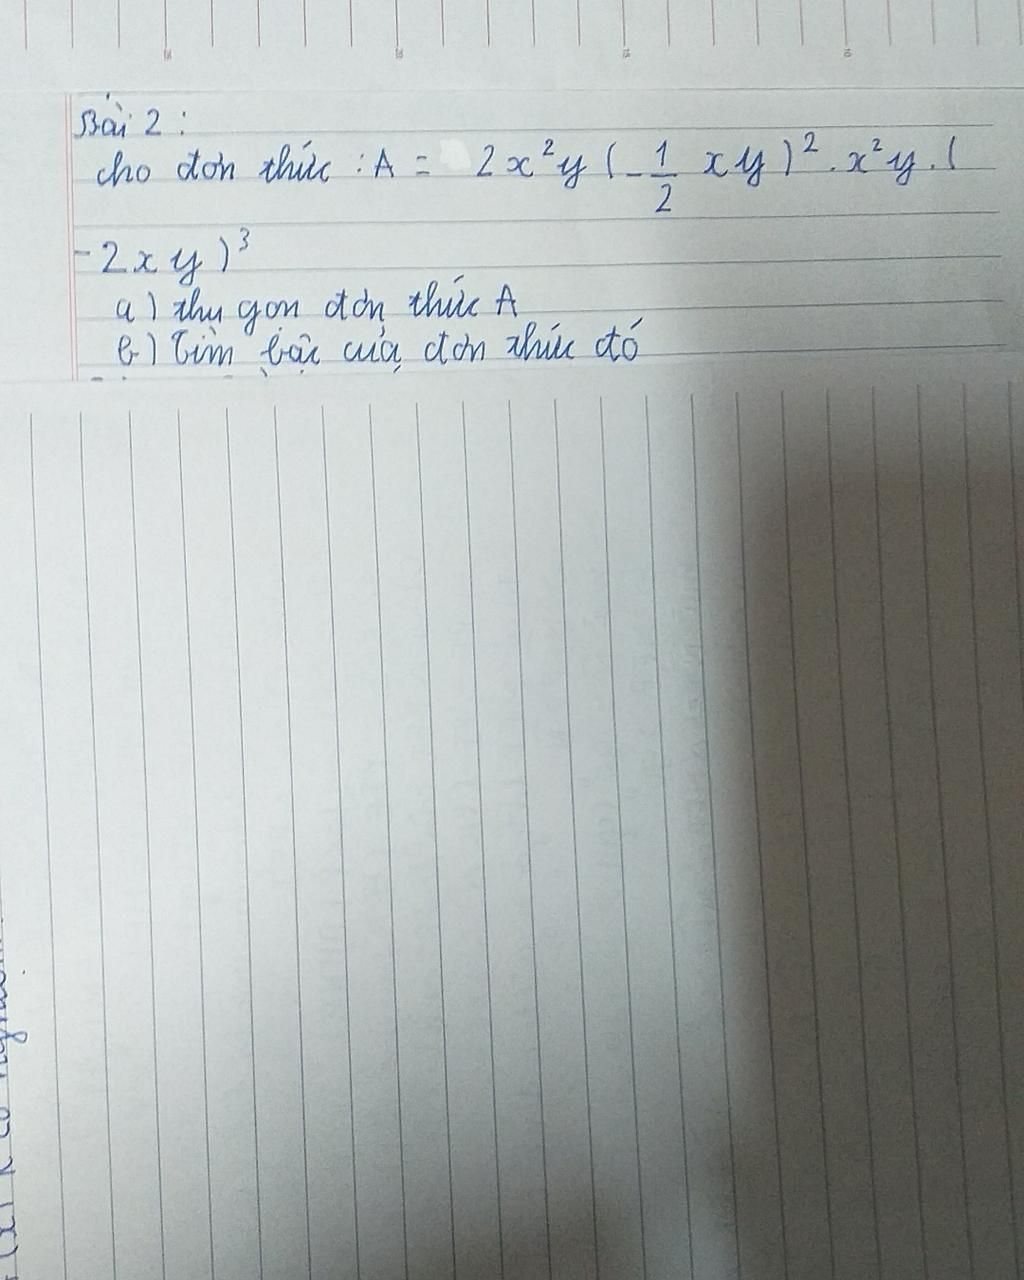 Bài 2 :
cho đơn thức : A = 2x²y (-1/2 xy)² . x²y . (
-2xy)³
a) thu gon đơn thức A
b) Tìm bậc của đơn thức đó